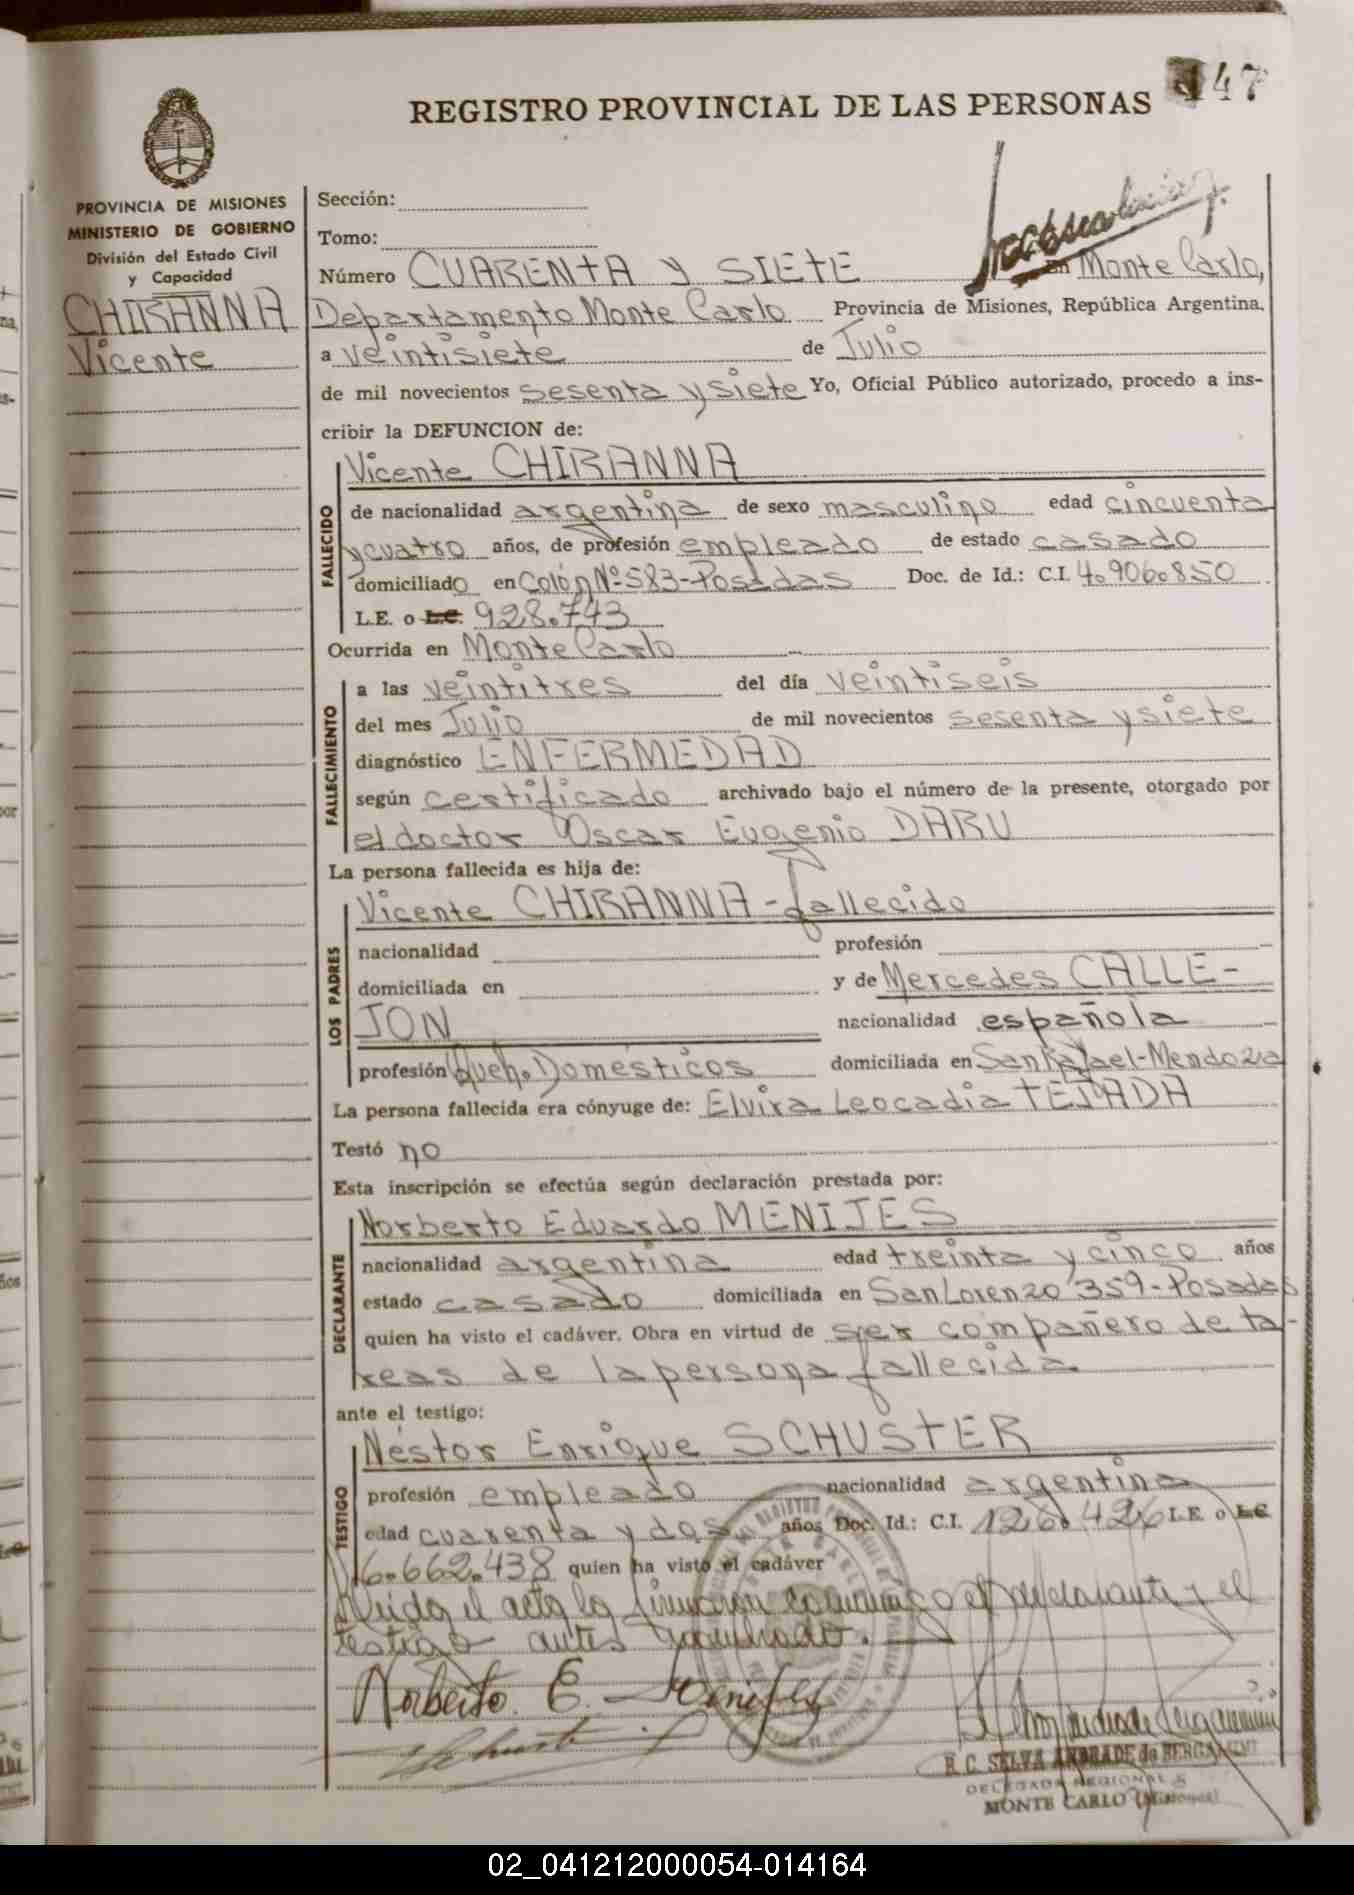 147
REGISTRO PROVINCIAL DE LAS PERSONAS
PROVINCIA DE MISIONES
MINISTERIO DE GOBIERNO
División del Estado Civil
y Capacidad
CHIRANNA
Vicente
Sección:
Tomo:
Número CUARENTA y SIETE En Monte Carlo,
Departamento Monte Carlo Provincia de Misiones, República Argentina,
a veintisiete de Julio
de mil novecientos sesenta y siete Yo, Oficial Público autorizado, procedo a ins-
cribir la DEFUNCION de:
FALLECIDO
Vicente CHIRANNA
de nacionalidad argentina de sexo masculino edad cincuenta
y cuatro años, de profesión empleado de estado casado
domiciliado en Colón Nº 583-Posadas Doc. de Id.: C.I. 4.906.850
L.E. o L.C. 928.743
Ocurrida en Monte Carlo
FALLECIMIENTO
a las veintitres del día veintiseis
del mes Julio de mil novecientos sesenta y siete
diagnóstico ENFERMEDAD
según certificado archivado bajo el número de la presente, otorgado por
el doctor Oscar Eugenio DARU
La persona fallecida es hija de:
LOS PADRES
Vicente CHIRANNA - fallecido
nacionalidad profesión
domiciliada en y de Mercedes CALLE-
JON nacionalidad española
profesión Queh. Domésticos domiciliada en San Rafael-Mendoza
La persona fallecida era cónyuge de: Elvira Leocadia TEJADA
Testó no
Esta inscripción se efectúa según declaración prestada por:
DECLARANTE
Norberto Eduardo MENIJES
nacionalidad argentina edad treinta y cinco años
estado casado domiciliada en San Lorenzo 359-Posadas
quien ha visto el cadáver. Obra en virtud de ser compañero de ta-
reas de la persona fallecida
ante el testigo:
TESTIGO
Néstor Enrique SCHUSTER
profesión empleado nacionalidad argentina
edad cuarenta y dos años Doc. Id.: C.I. 126.426 L.E. o L.C.
6.662.438 quien ha visto el cadáver
el acta la firmaron conmigo el declarante y el
testigo antes nombrado.
Norberto E. Menijes
R. C. SELVA ANDRADE de BERGAMINI
DELEGADA REGIONAL
MONTE CARLO (Misiones)
02_041212000054-014164